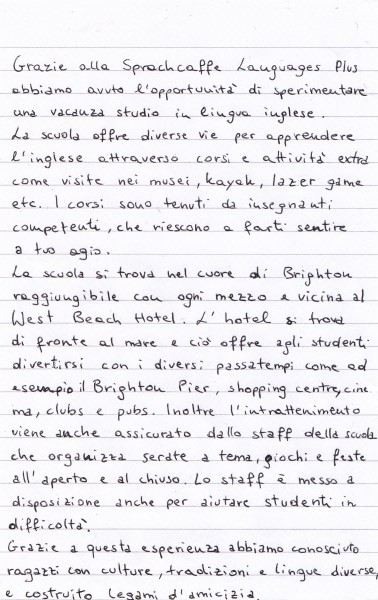 Grazie alla Sprachcaffe Languages Plus
abbiamo avuto l'opportunità di sperimentare
una vacanza studio in lingua inglese.
La scuola offre diverse vie per apprendere
l'inglese attraverso corsi e attività extra
come visite nei musei, kayak, lazer game
etc. I corsi sono tenuti da insegnanti
competenti, che riescono a farti sentire
a tuo agio.
La scuola si trova nel cuore di Brighton
raggiungibile con ogni mezzo e vicina al
West Beach Hotel. L'hotel si trova
di fronte al mare e ciò offre agli studenti
divertirsi con i diversi passatempi come ad
esempio il Brighton Pier, shopping centre, cine
ma, clubs e pubs. Inoltre l'intrattenimento
viene anche assicurato dallo staff della scuola
che organizza serate a tema, giochi e feste
all'aperto e al chiuso. Lo staff è messo a
disposizione anche per aiutare studenti in
difficoltà.
Grazie a questa esperienza abbiamo conosciuto
ragazzi con culture, tradizioni e lingue diverse,
e costruito legami d'amicizia.